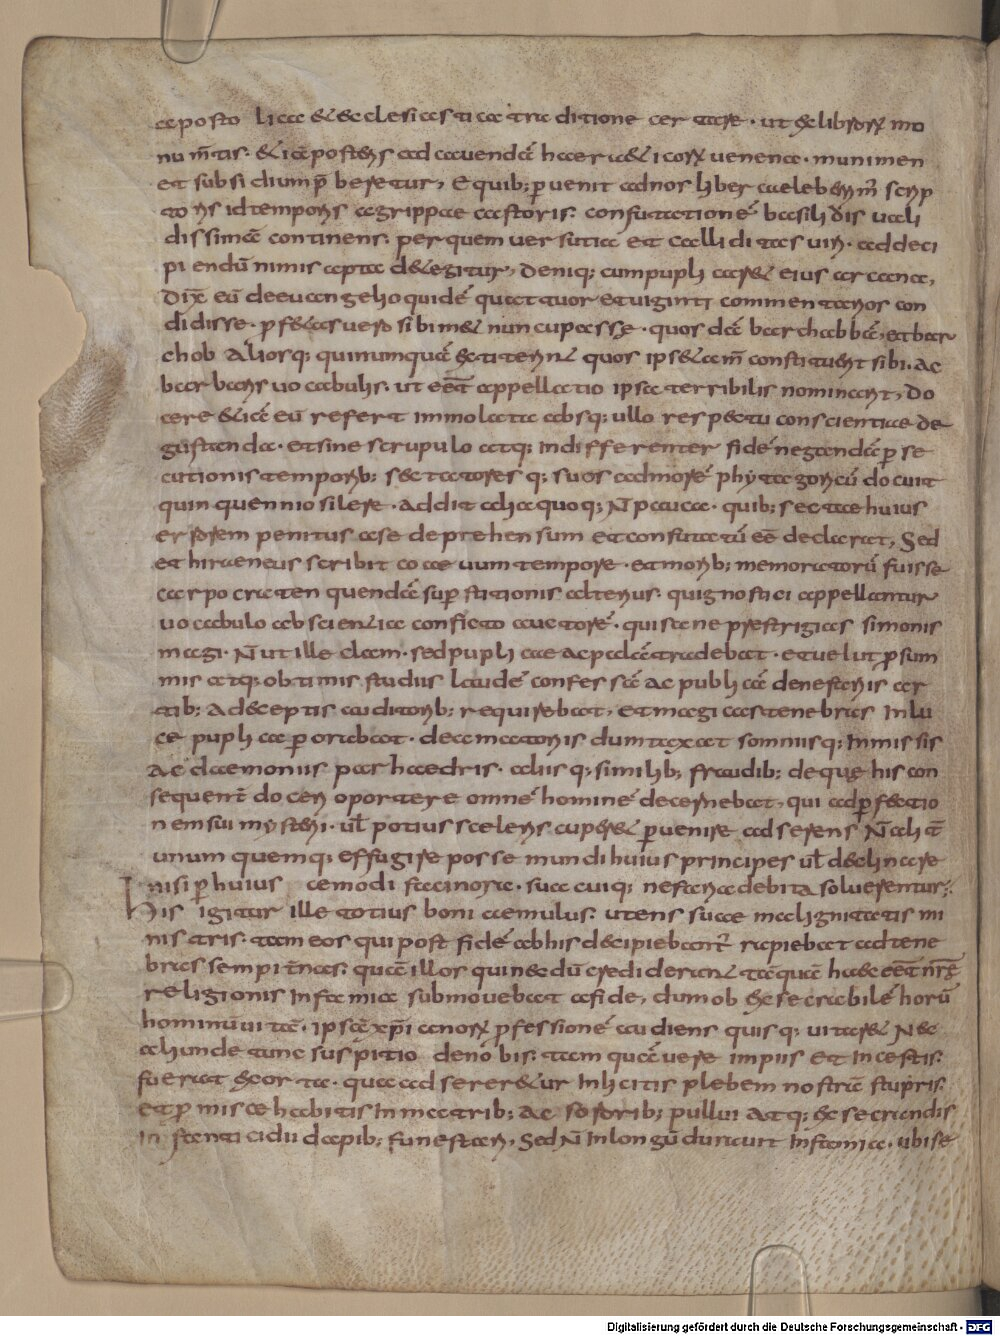 apostolicae & ecclesiasticae traditione certare. ut ex librorum mo
num̄tis. & iā posteris ad cauendā haereticorum uenena. munimen
et subsidium p̄beretur, E quib; puenit ad nos liber celeberrim̄ scrip
toris id temporis agrippae castoris. confutationē basilidis uali
dissimā continens. per quem uersutiae et calliditates uiri. ad deci
piendū nimis aptae deteguntur, Deniq; cum publicaret eius arcana,
dix̄ eū de euangelio quidē quattuor et uiginti commentarios con
didisse. profetas uero sibimet nuncupasse. quos dā barchabbā, et bar
chob Aliosq; quinumquā extiterint quos ipse tam̄ constituerit sibi. ac
barbaris uocabulis. ut eēt appellatio ipsa terribilis nominarit, Do
cere etiā eū refert immolata absq; ullo respectu conscientiae de
gustanda. et sine scrupulo atq; indifferenter fidē negandā pse
cutionis temporib; sectatoresq; suos ad morē phytagoricū docuit
quinquennio silere. Addit alia quoq; N̄ pauca. quib; sectae huius
errorem penitus a se deprehensum et confutatū eē declarat, Sed
et hiraeneus scribit coaeuum tempore. et morib; memoratorū fuisse
carpocraten quendā superstitionis alterius. qui gnostici appellantur
uocabulo ab scientiae conficto auctorē. qui sane prestrigias simonis
magi. N̄ ut ille clam. sed publicae ac palā tradebat. et uelut p sum
mis atq; obtimis studiis laudē confessā ac publicā de nefariis ar
tib; ad ceptis auditorib; requirebat, et magicas tenebras in lu
ce publica portabat. de amatoriis dumtaxat somniisq; inmissis
Ac daemoniis parhaedris. aliisq; similib; fraudib; de quę his con
sequent̄ doceri oportere omnē hominē decernebat, qui ad pfectio
nem sui mysterii. ul̄ potius sceleris cuperet puenire ad serens N̄ alit̄
unum quemq; effugire posse mundi huius principes ul̄ declinare
nisi p huiuscemodi facinora. sua cuiq; nefaria debita soluerentur;
His igitur ille totius boni aemulus. utens suae malignitatis mi
nistris. tam eos qui post fidē ab his decipiebant̄ rapiebat ad tene
bras sempit̄nas. quā illos qui necdū crediderant̄ tāquā haec eēt nr̄ę
religionis infamiae submouebat a fide, dum ob exsecrabilē horū
hominū uitā. ipsā xp̄ianorum pfessionē audiens quisq; uitaret Nec
aliunde tunc suspitio de nobis. tam quā uere impiis et incestis.
fuerat exorta. quae adsereretur inlicitis plebem nostrā stupris.
et pmiscae habitis in matrib; ac sororib; pollui Atq; exsecrandis
infanticidii dapib; funestari, Sed N̄ in longū durauit infamia. ubi se
Digitalisierung gefördert durch die Deutsche Forschungsgemeinschaft - DFG